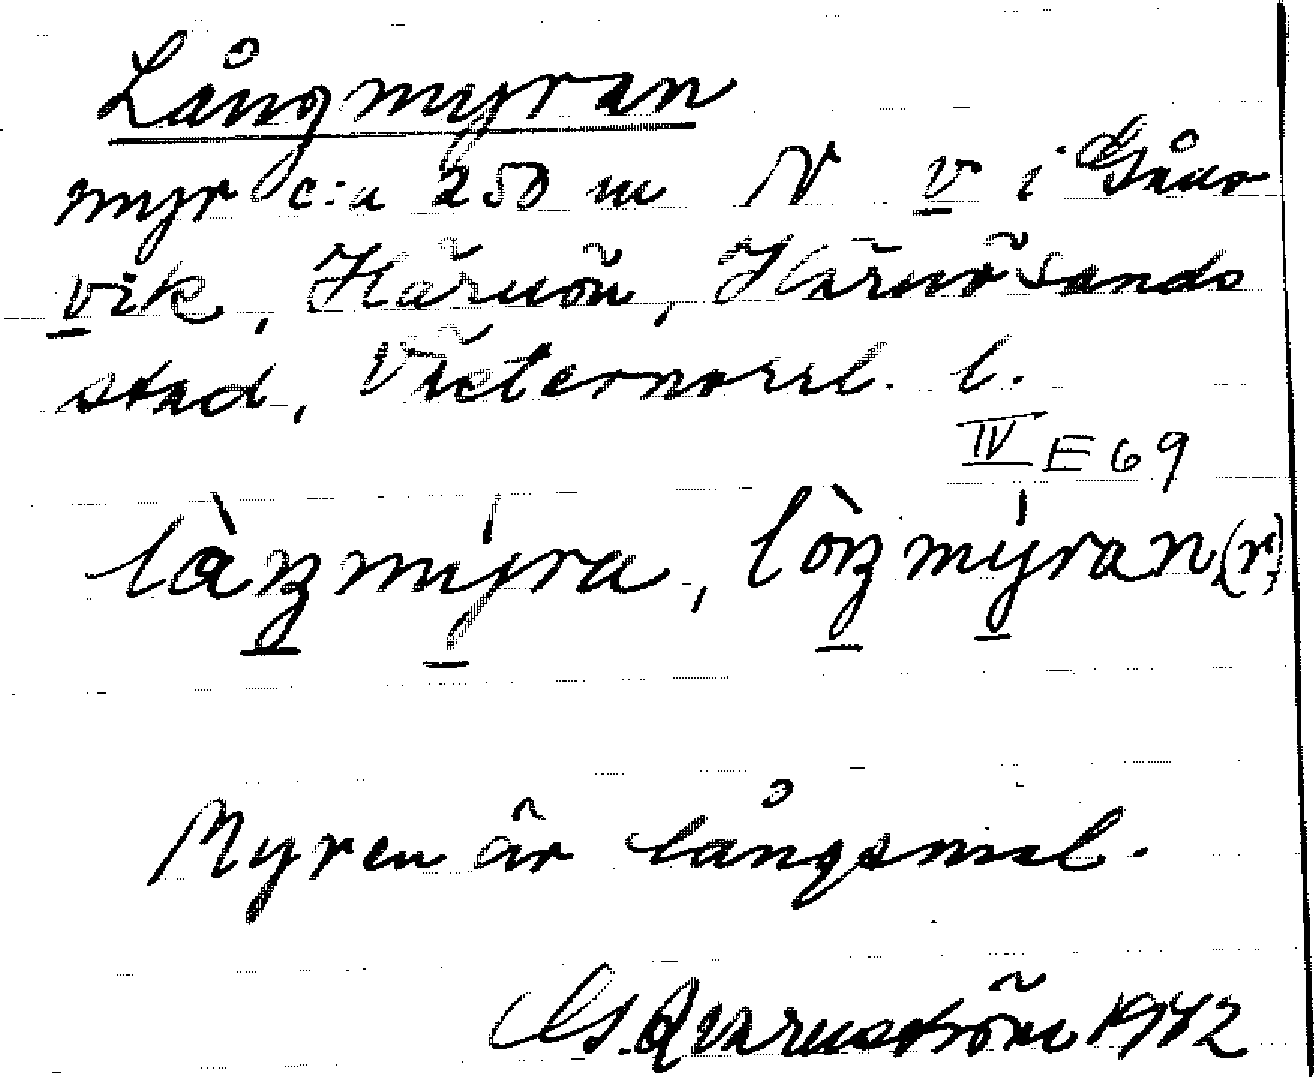 Långmyran
myr c:a 250 m N v i Gåno
vik, Härnön, Härnösands
stad, Västernorrl. l.
IV E 69
làŋmýra, lòŋmýran (r)
Myren är långsmal.
G. Qvarnström 1942